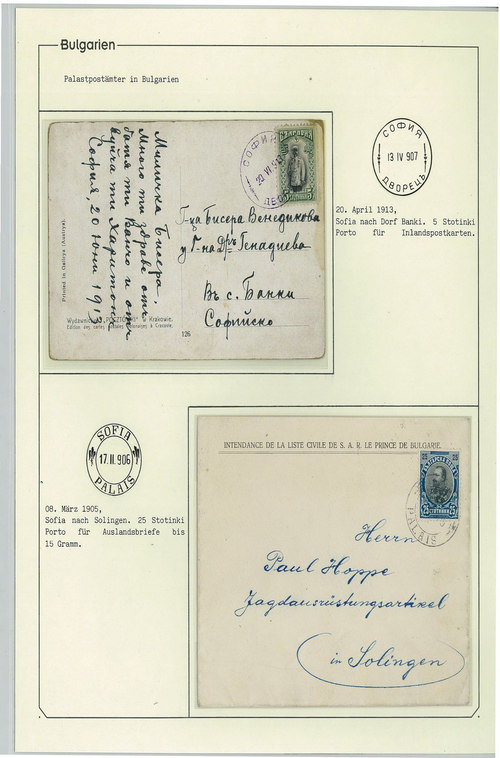 Bulgarien
Palastpostämter in Bulgarien
Миличка Бисера,
Много ти здраве отъ
батя ти Ванчо и отъ
вуйча ти Харитонъ
София, 20 юни 1913
Printed in Galicya (Austrya).
Wydawnictwo „POCZTÓWKI” w Krakowie.
Edition des cartes postales
à Cracovie.
126
БЪЛГАРИЯ
5
5
СОФИЯ
20 VI 913
ДВО
Г-ца Бисера Венедикова
у Г-на Дръ Генадиева
Въ с. Банки
Софийско
СОФИЯ
13 IV 907
ДВОРЕЦЪ
20. April 1913,
Sofia nach Dorf Banki. 5 Stotinki
Porto für Inlandspostkarten.
SOFIA
17.II.906
PALAIS
08. März 1905,
Sofia nach Solingen. 25 Stotinki
Porto für Auslandsbriefe bis
15 Gramm.
INTENDANCE DE LA LISTE CIVILE DE S. A. R. LE PRINCE DE BULGARIE.
25
25
25
25
СТОТИНКИ
PALAIS
Herrn
Paul Hoppe
Jagdausrüstungsartikel
in Solingen